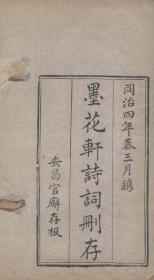 同治四年春三月鐫
墨花軒詩詞刪存
安昌官廨存板